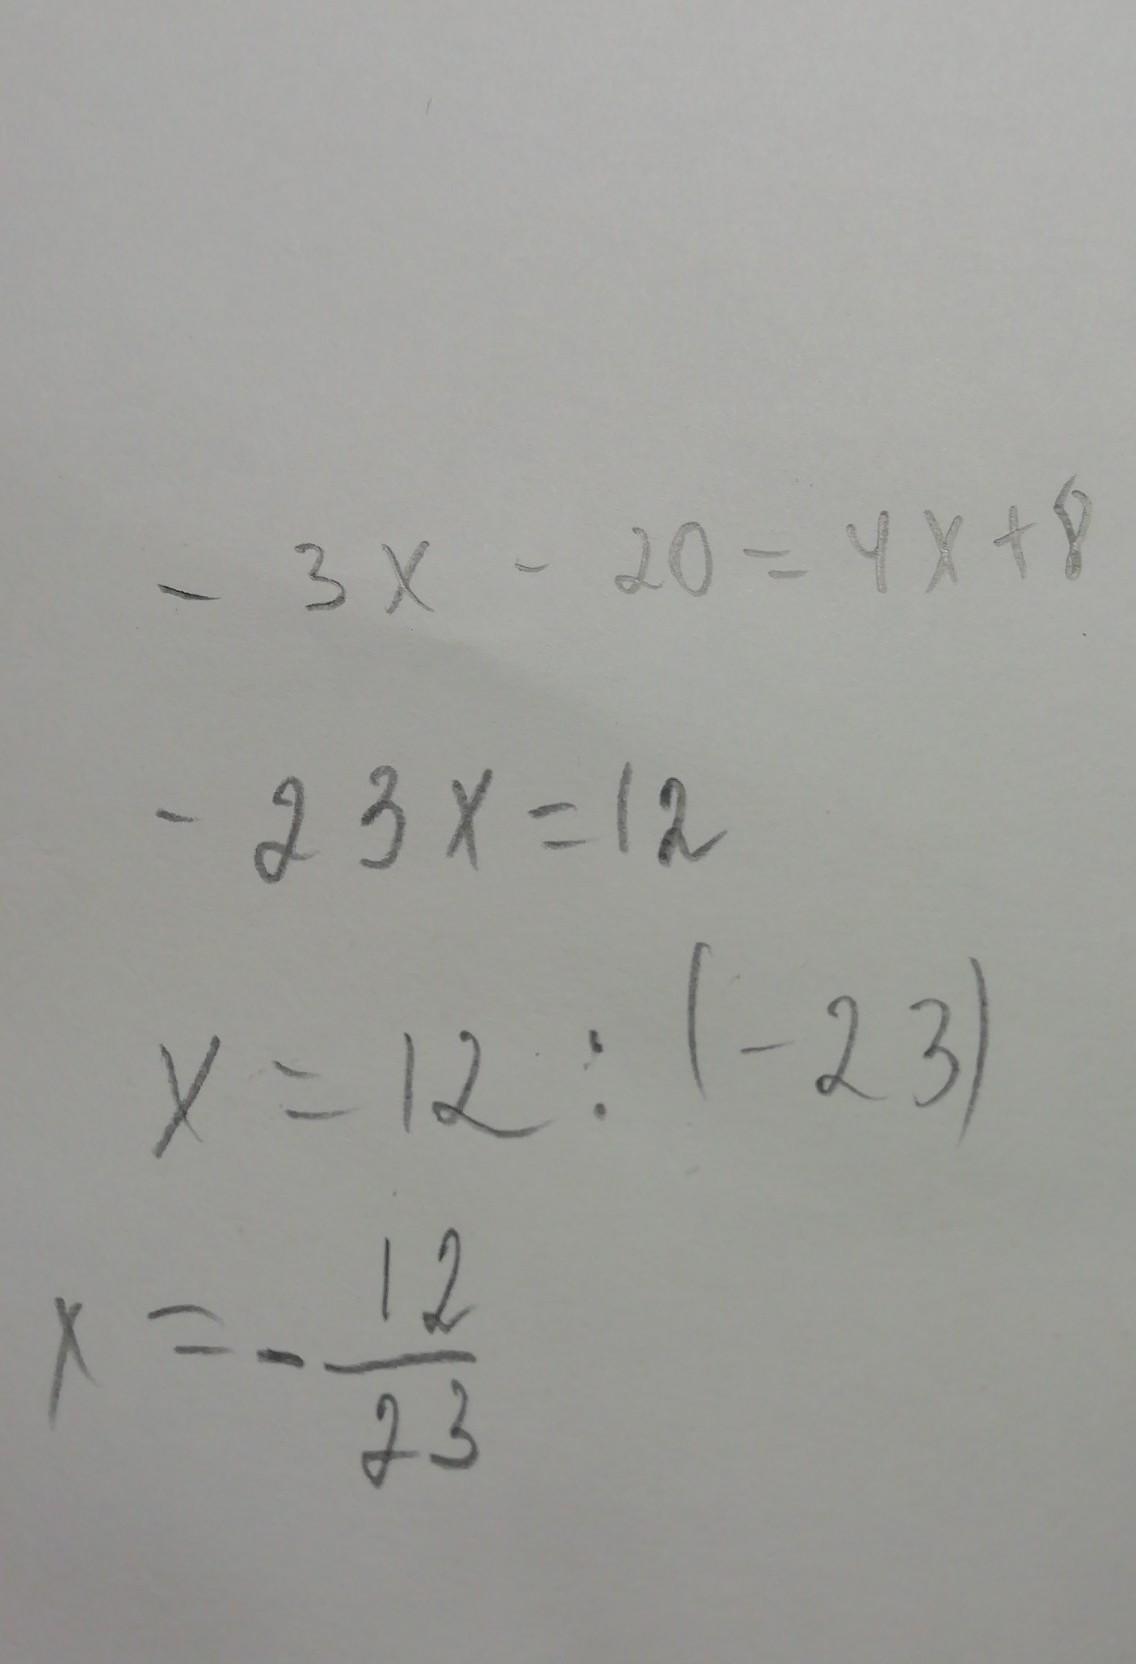 - 3x - 20 = 4x + 8
- 23x = 12
x = 12 : (-23)
x = - 12/23